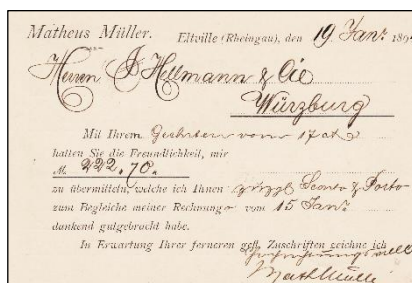 Matheus Müller. Eltville (Rheingau), den 19 Janr. 189
Herren J Hellmann & Cie
Würzburg
Mit Ihrem Geehrten vom 17 ct
hatten Sie die Freundlichkeit, mir
M. 222.70.
zu übermitteln, welche ich Ihnen zuzgl Sconto & Porto
zum Begleiche meiner Rechnung vom 15 Janr
dankend gutgebracht habe.
In Erwartung Ihrer ferneren gefl. Zuschriften zeichne ich
hochachtungsvoll
Math Müller